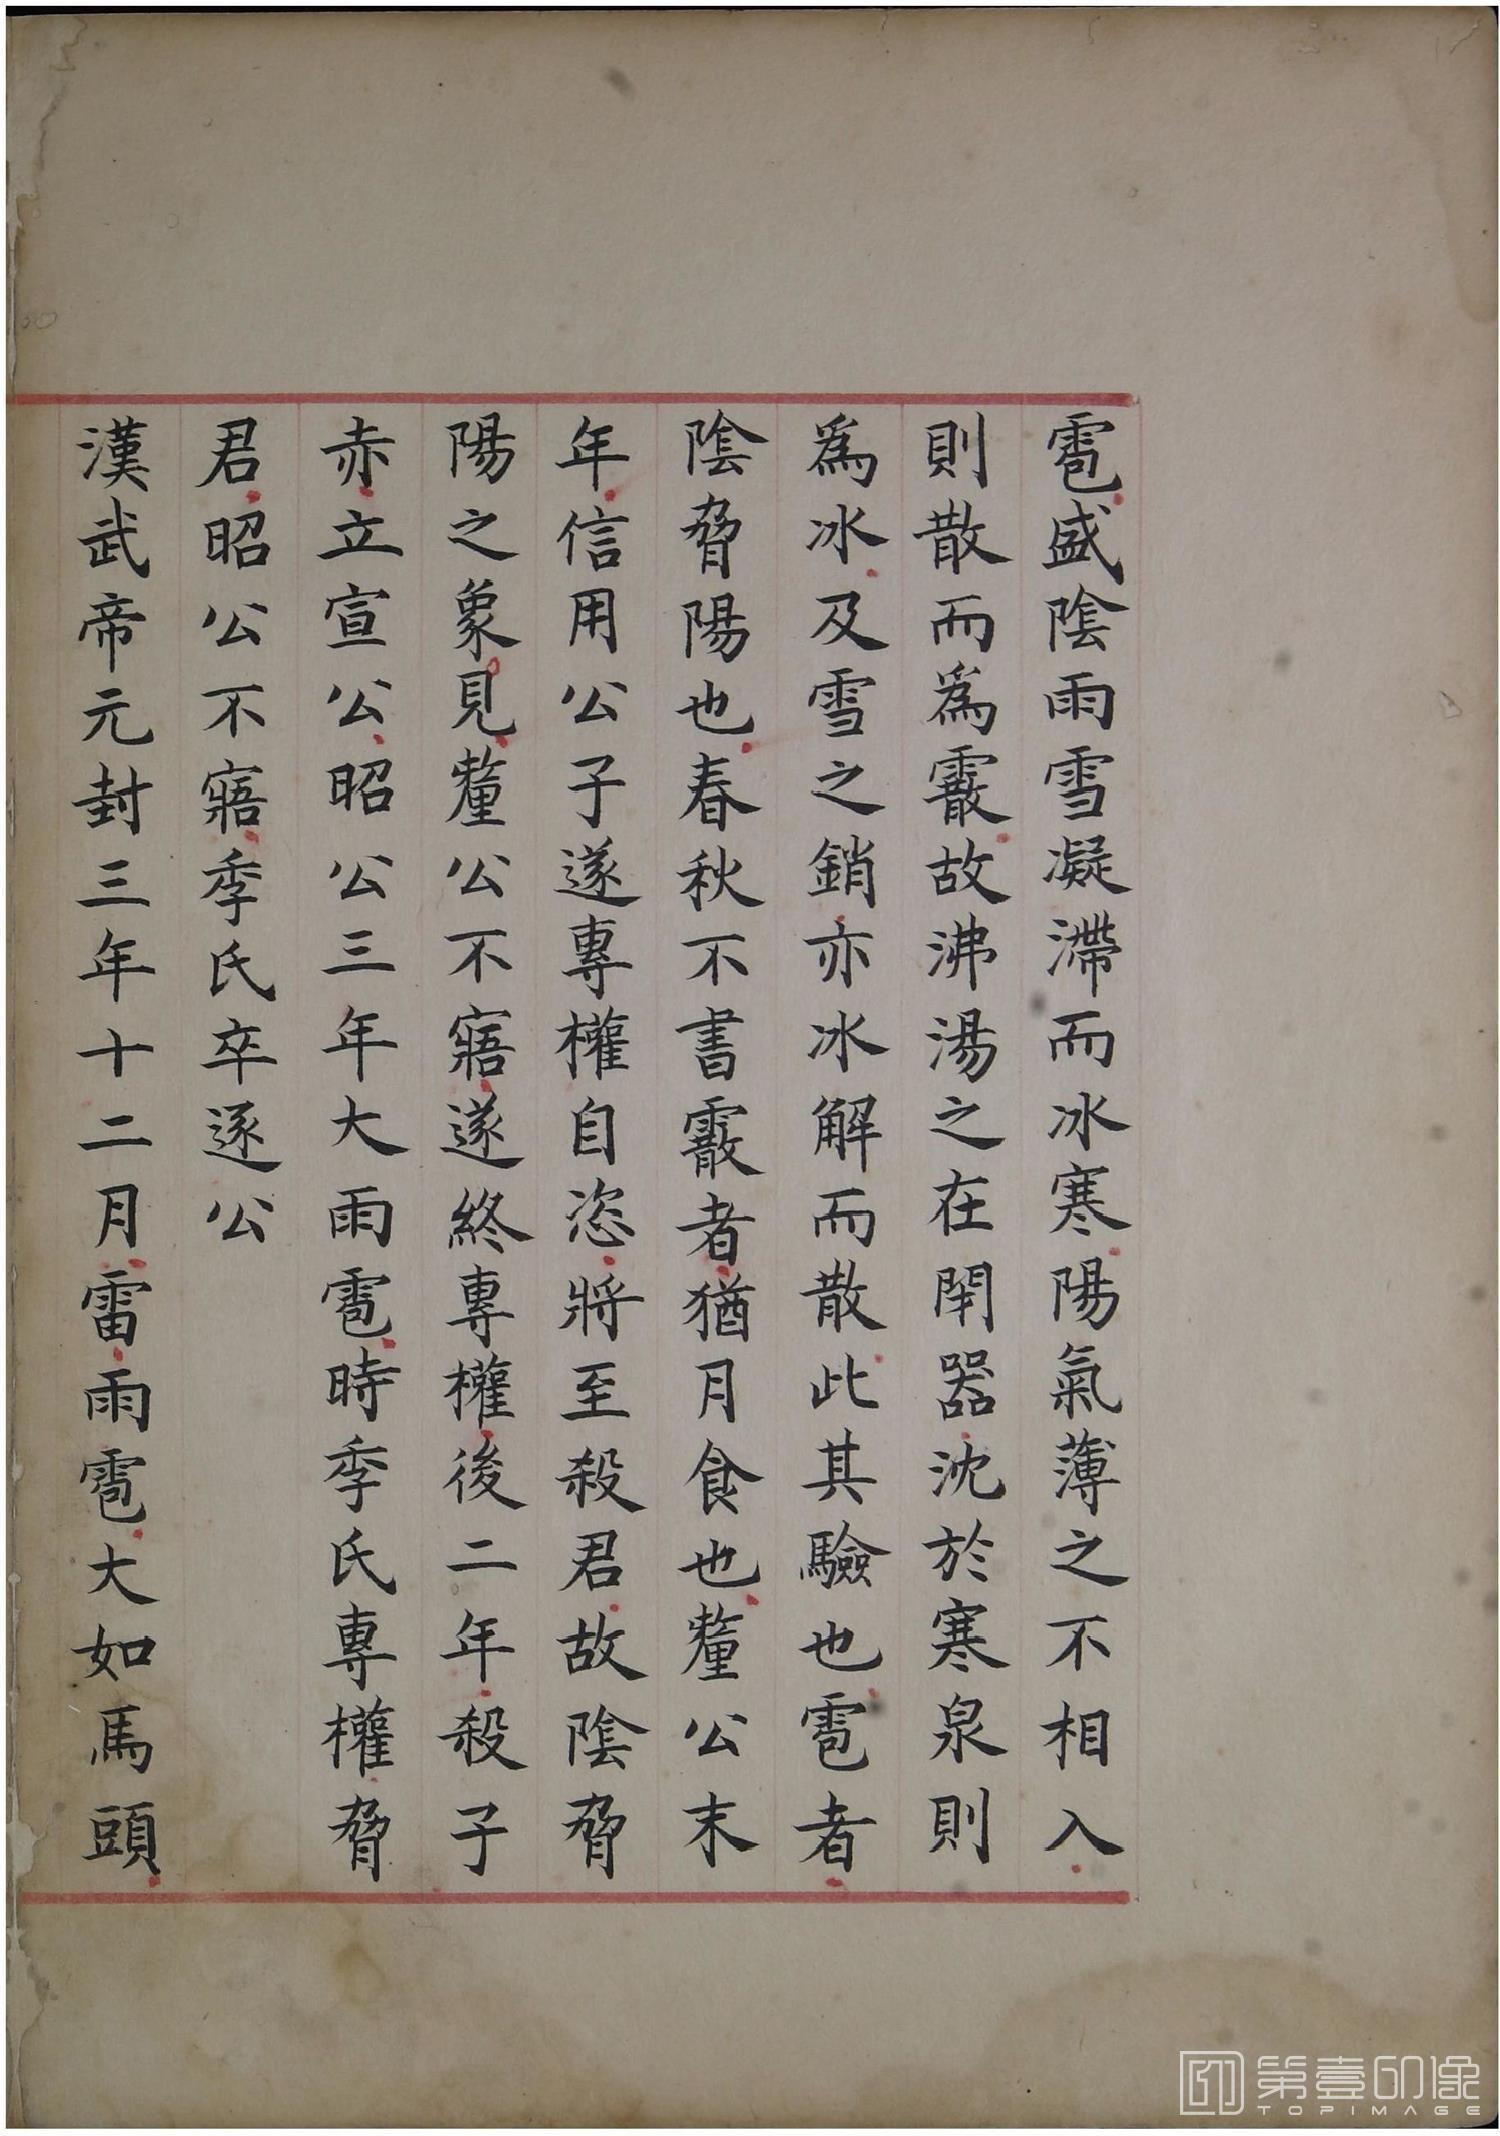 雹盛陰雨雪凝滯而冰寒陽氣薄之不相入
則散而為霰故沸湯之在閉器沈於寒泉則
為冰及雪之銷亦冰解而散此其驗也雹者
陰脅陽也春秋不書霰者猶月食也釐公末
年信用公子遂專權自恣將至殺君故陰脅
陽之象見釐公不寤遂終專權後二年殺子
赤立宣公昭公三年大雨雹時季氏專權脅
君昭公不寤季氏卒逐公
漢武帝元封三年十二月雷雨雹大如馬頭
第壹印像
TOPIMAGE